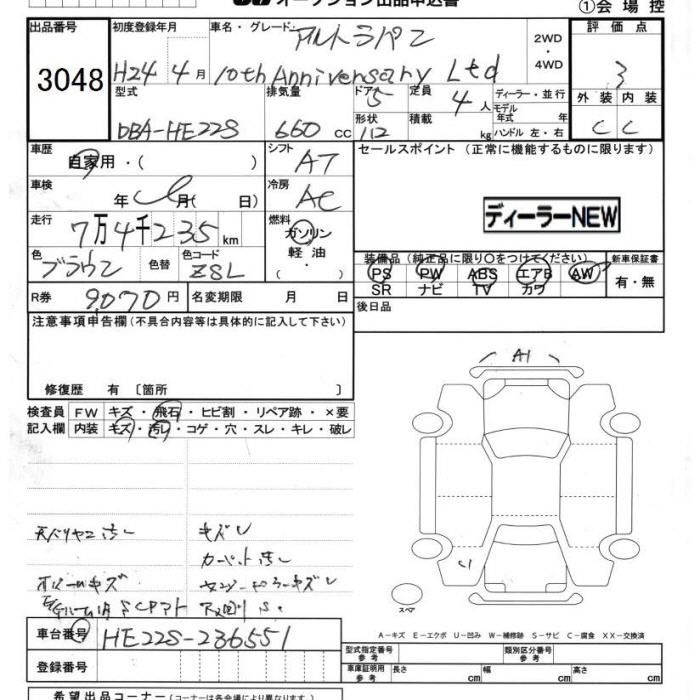 オークション出品申込書 ①会場控
出品番号 3048
初度登録年月 H24 4月
車名・グレード アルトラパン
10th Anniversary Ltd
2WD
・4WD
評価点 3
型式 DBA-HE22S
排気量 660cc
ドア 5
形状 112
定員 4人
積載 kg
ディーラー・並行
モデル年式 年
ハンドル 左・右
外装 内装
C C
車歴 自家用・( )
シフト AT
セールスポイント (正常に機能するものに限ります)
車検 年 月( 日)
冷房 AC
ディーラーNEW
走行 7万4千235km
燃料 ガソリン
軽油・
色 ブラウン 色替 色コード ZSL
装備品(純正品に限り○をつけてください) 新車保証書
PS PW ABS エアB AW
SR ナビ TV カワ
有・無
R券 9,070円 名変期限 月 日
後日品
注意事項申告欄(不具合内容等は具体的に記入して下さい)
A1
修復歴 有 〔箇所 〕
検査員 FW キズ・飛石・ヒビ割・リペア跡・×要
記入欄 内装 キズ・汚レ・コゲ・穴・スレ・キレ・破レ
キズレ
カーペット汚レ
スペア
A-キズ E-エクボ U-凹み W-補修跡 S-サビ C-腐食 XX-交換済
車台番号 HE22S-236551
型式指定番号 参考
類別区分番号 参考
登録番号
車庫証明用 参考 長さ cm 幅 cm 高さ cm
希望出品コーナー(コーナーは各会場により異なります。)